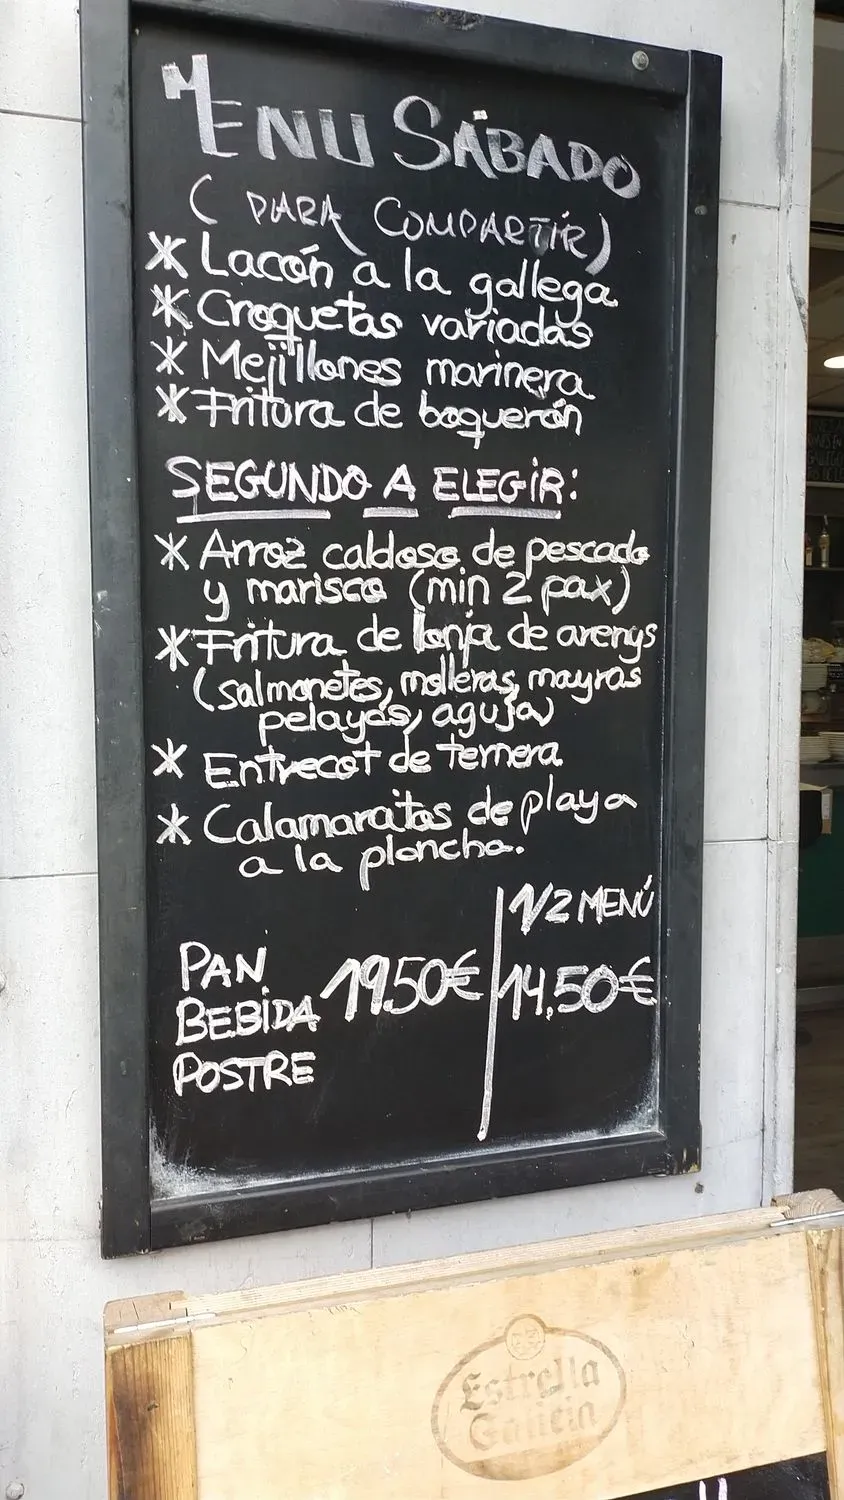 MENU SÁBADO
(PARA COMPARTIR)
* Lacón a la gallega
* Croquetas variadas
* Mejillones marinera
* Fritura de boquerón
SEGUNDO A ELEGIR:
* Arroz caldoso de pescado
y marisco (min 2 pax)
* Fritura de lonja de arenys
(salmonetes, molleras, mayras
pelayas, aguja)
* Entrecot de ternera
* Calamaraitos de playa
a la plancha.
1/2 MENÚ
PAN
BEBIDA 19.50€ 14,50€
POSTRE
Estrella
Galicia